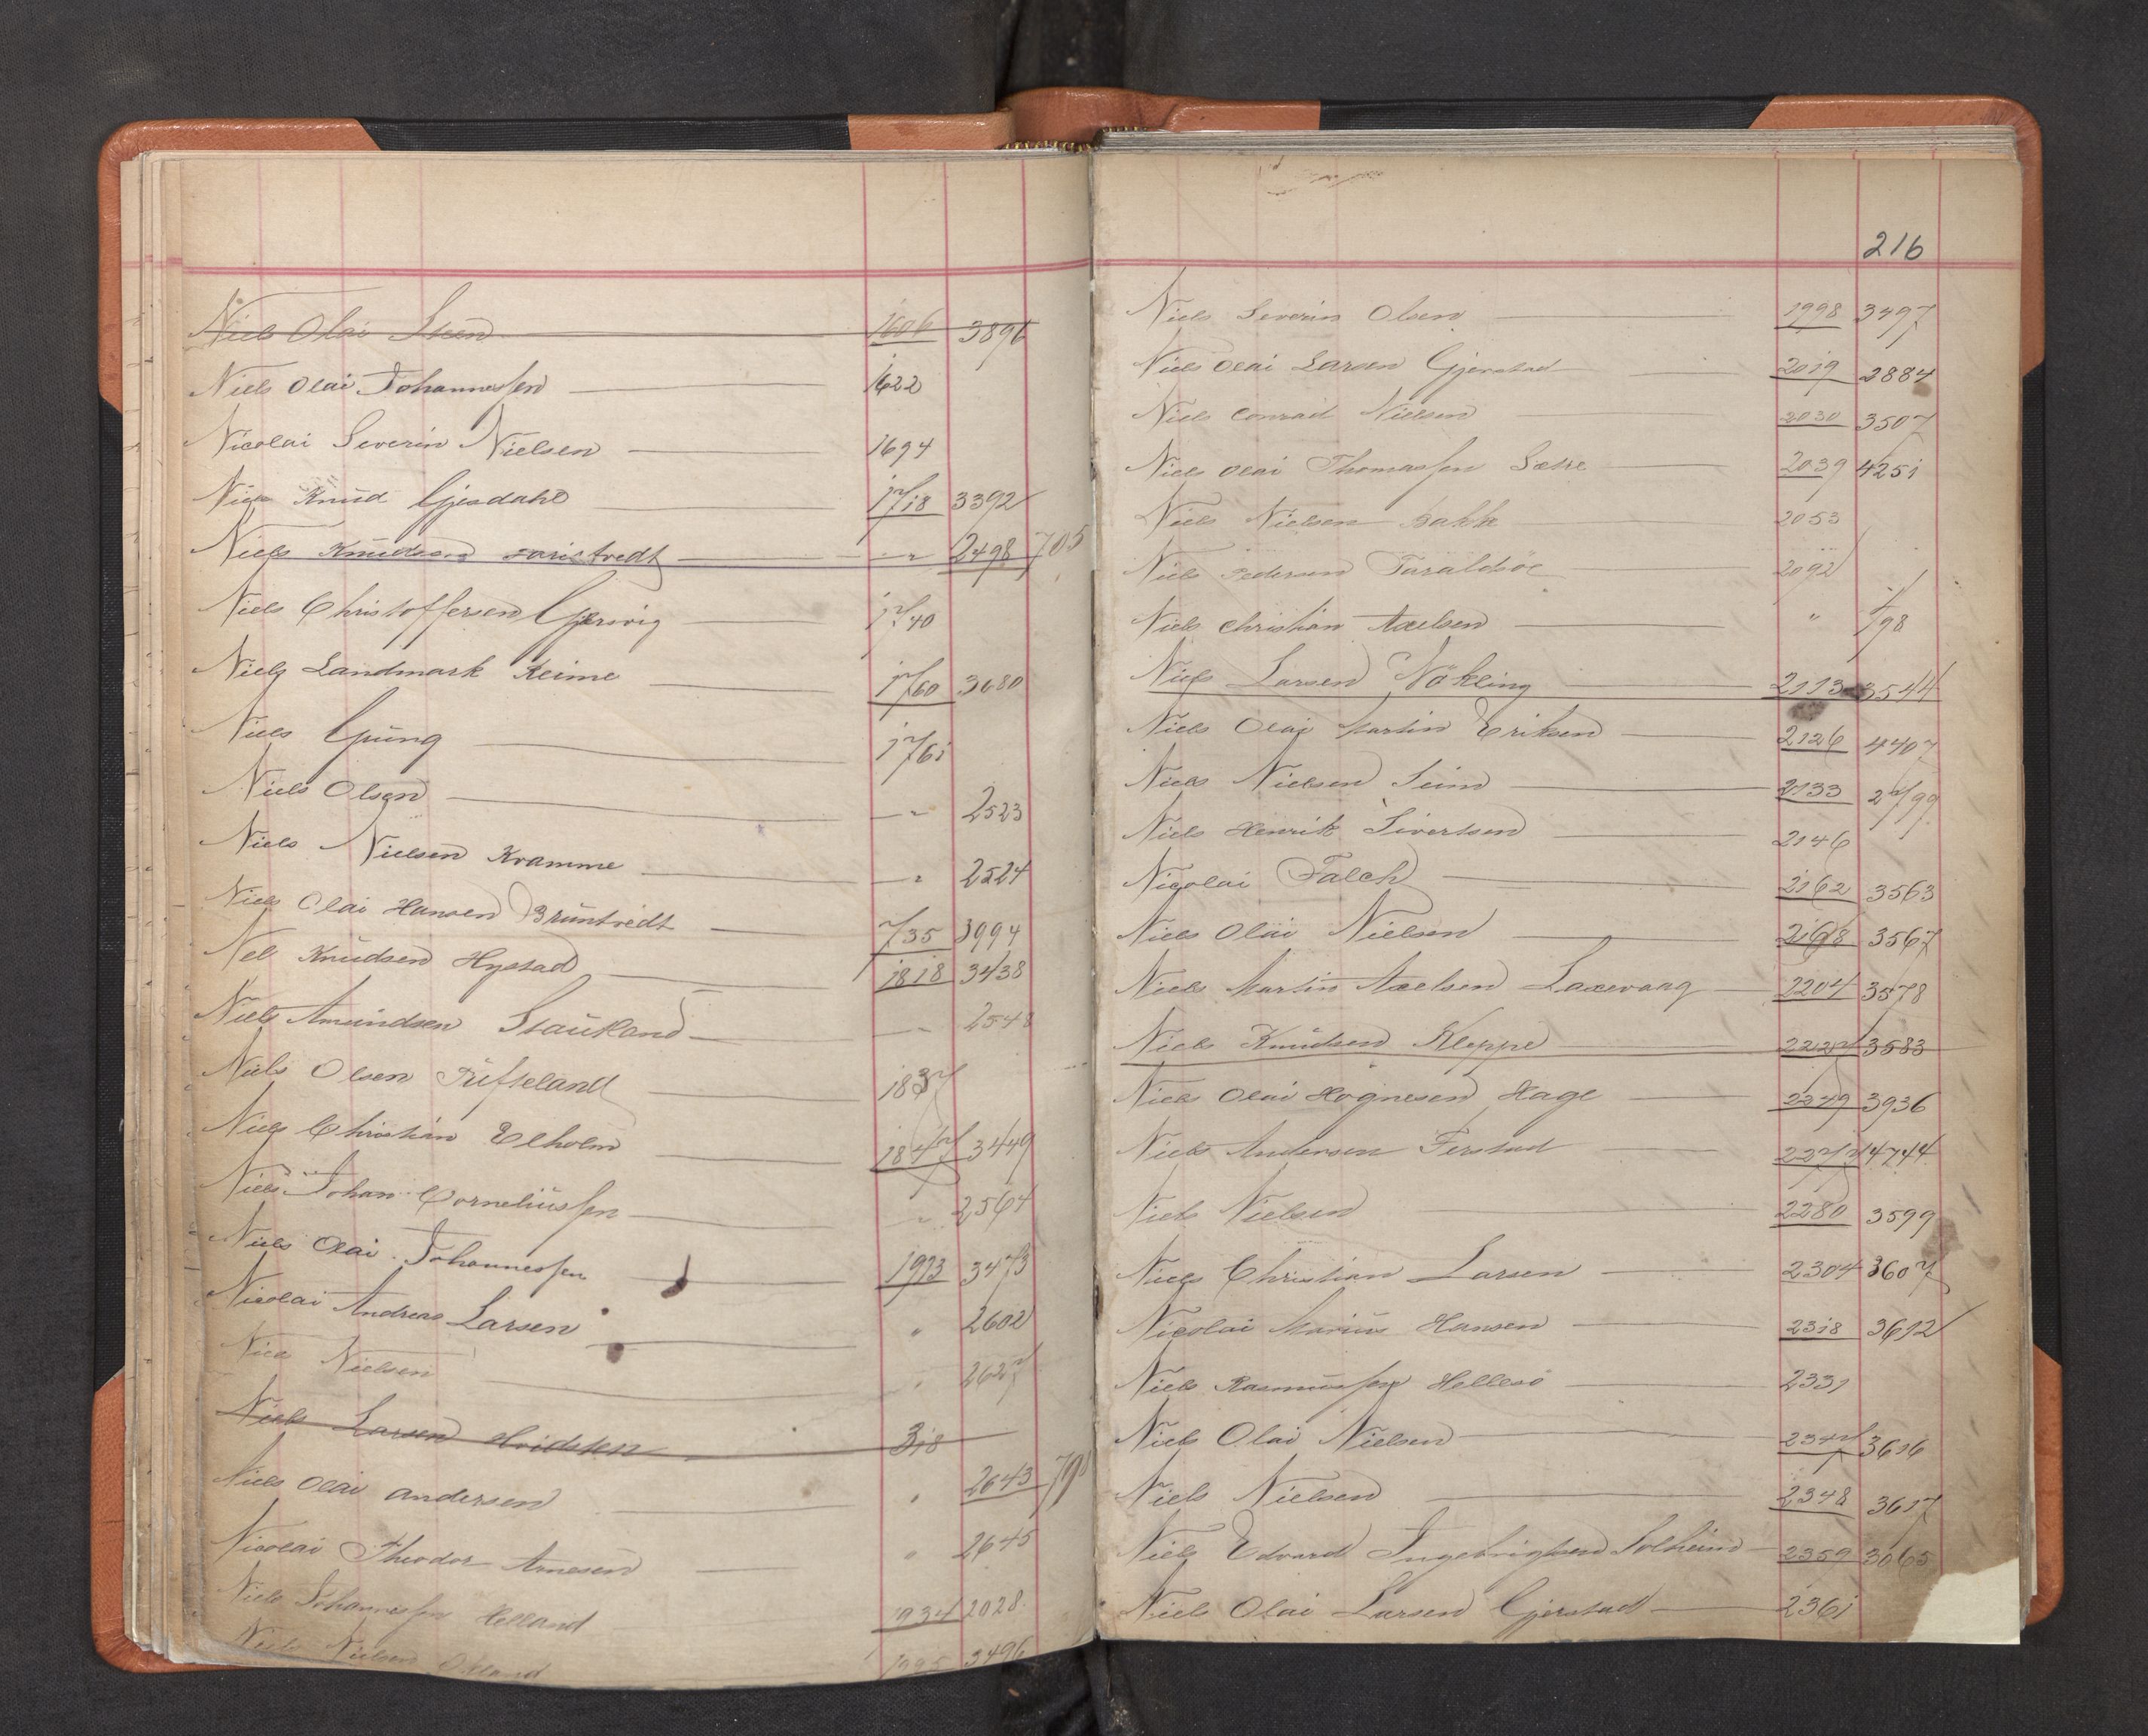 Niels Olai Steen 1606 3896
Niels Olai Johannessen 1622
Nicolai Severin Nielsen 1694
Knud Gjesdahl 1718 3392
Niels Knudsen 2498 705
Niels Christoffersen Gjersvig 1740
Niels Landmark Reime 1760 3680
Niels 1761
Niels Olsen " 2523
Niels Nielsen Kramme " 2524
Niels Olai Hansen 735 3994
Nels Knudsen Hystad 1818 3438
Niels Amundsen Staukland " 2548
Niels Olsen 1837
Niels Christian Elholm 1847 3449
Niels Johan Corneliussen " 2564
Niels Olai Johannessen 3473
Nicolai Andreas Larsen " 2602
Nielsen " 2627
Niels Larsen Hvidsten 318
Niels Olai Andersen " 2643
Nicolai Theodor Arnesen " 2645
Niels Johannessen Helland 1934 2028
Niels Nielsen 3496
216
Niels Severin Olsen 1998 3497
Niels Olai Larsen Gjerstad 2019 2884
Niels Conrad Nielsen 2030 3507
Niels Olai Thomassen Sætre 2039 4251
Niels Nielsen Bakke 2053
Niels Pedersen Taraldsöe 2092
Niels Christian Axelsen " 1/98
Niels Larsen Nökling 2113 3544
Niels Olai Martin Eriksen 2126 4407
Niels Nielsen Seim 2133
Niels Henrik Sivertsen 2146
Nicolai Falch 2162 3563
Niels Olai Nielsen 2168 3567
Niels Martin Axelsen Laxevaag 2204 3578
Niels Knudsen Kleppe 2227 3583
Niels Olai Hognesen Hage 2249 3936
Niels Andersen Ferstad 4744
Niels Nielsen 2280 3599
Niels Christian Larsen 2304 3607
Nicolai Marius Hansen 2318 3612
Niels Rasmussen Hellesö 2331
Niels Olai Nielsen 2347 3616
Niels Nielsen 2348 3617
Niels Edvard Ingebrigtsen Solheim 2359 3065
Niels Olai Larsen Gjerstad 2361